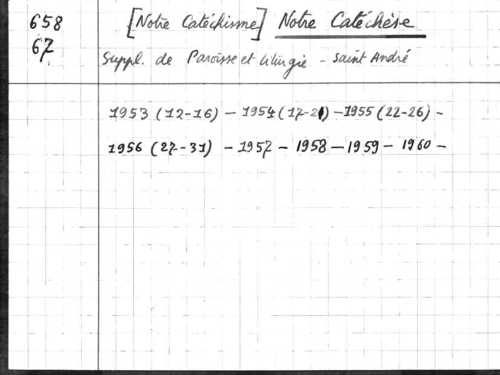 658 [Notre Catéchisme] Notre Catéchèse
67
Suppl. de Paroisse et Liturgie - Saint André
1953 (12-16) - 1954 (17-21) - 1955 (22-26) -
1956 (27-31) - 1957 - 1958 - 1959 - 1960 -